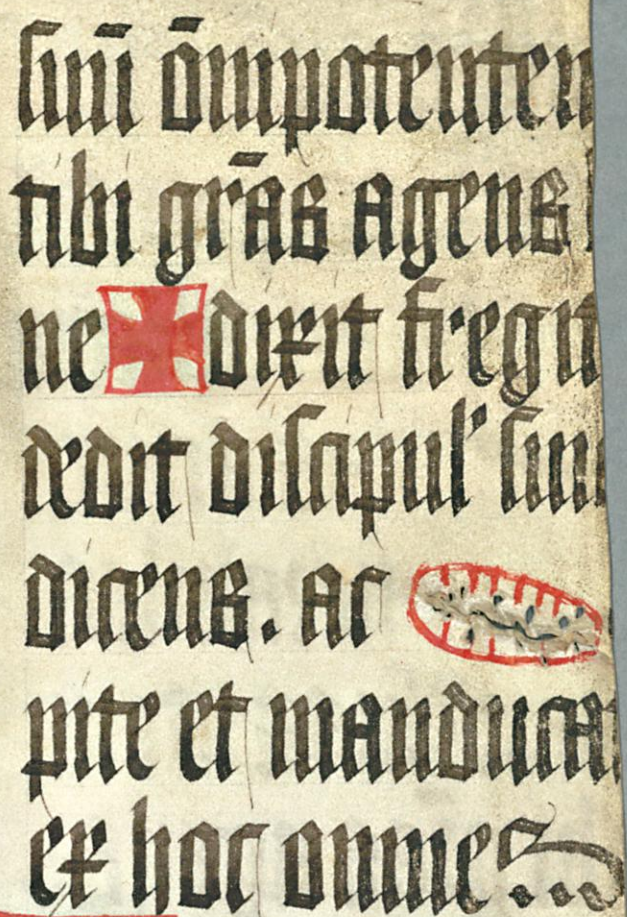 suū om̄ipotenten
tibi gr̄as agens
ne ✠ dixit fregit
dedit discipul' suis
dicens. Ac
pite et manducat
ex hoc omnes